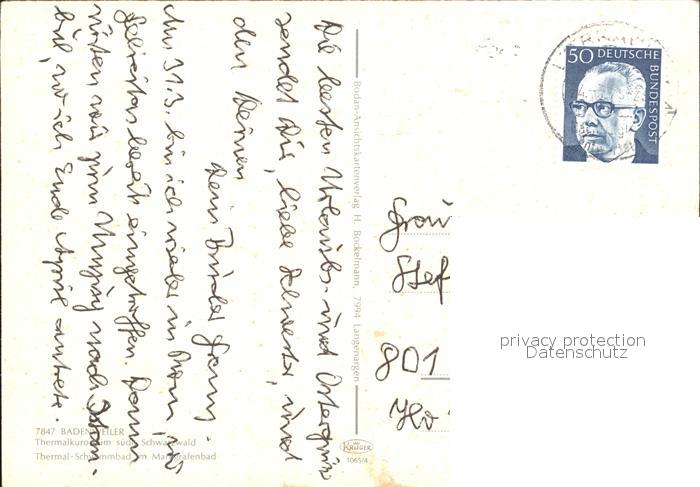 Die besten Urlaubs- und Ostergrüße
sendet Dir, liebe Schwester, und
den Deinen
Dein Bruder Franz.
Am 31.3. bin ich wieder in Bonn, wo
bereits eingetroffen. Dann
rüsten wir zum Umzug nach
wo ich Ende April antrete.
Bodan-Ansichtskartenverlag H. Bockelmann, 7994 Langenargen
7847 BADENWEILER
Thermalkurort im südl. Schwarzwald
Thermal-Schwimmbad im Markgrafenbad
KRÜGER
1065/4
50 DEUTSCHE
BUNDESPOST
Frau
Stef
801
privacy protection
Datenschutz